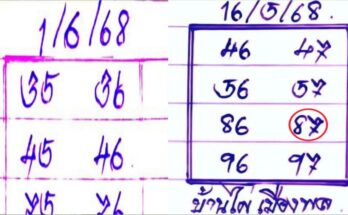 1/6/68
35 36
45 46
75 76
16/5/68
46 47
56 57
86 87
96 97
บ้านไผ่ เมืองพล